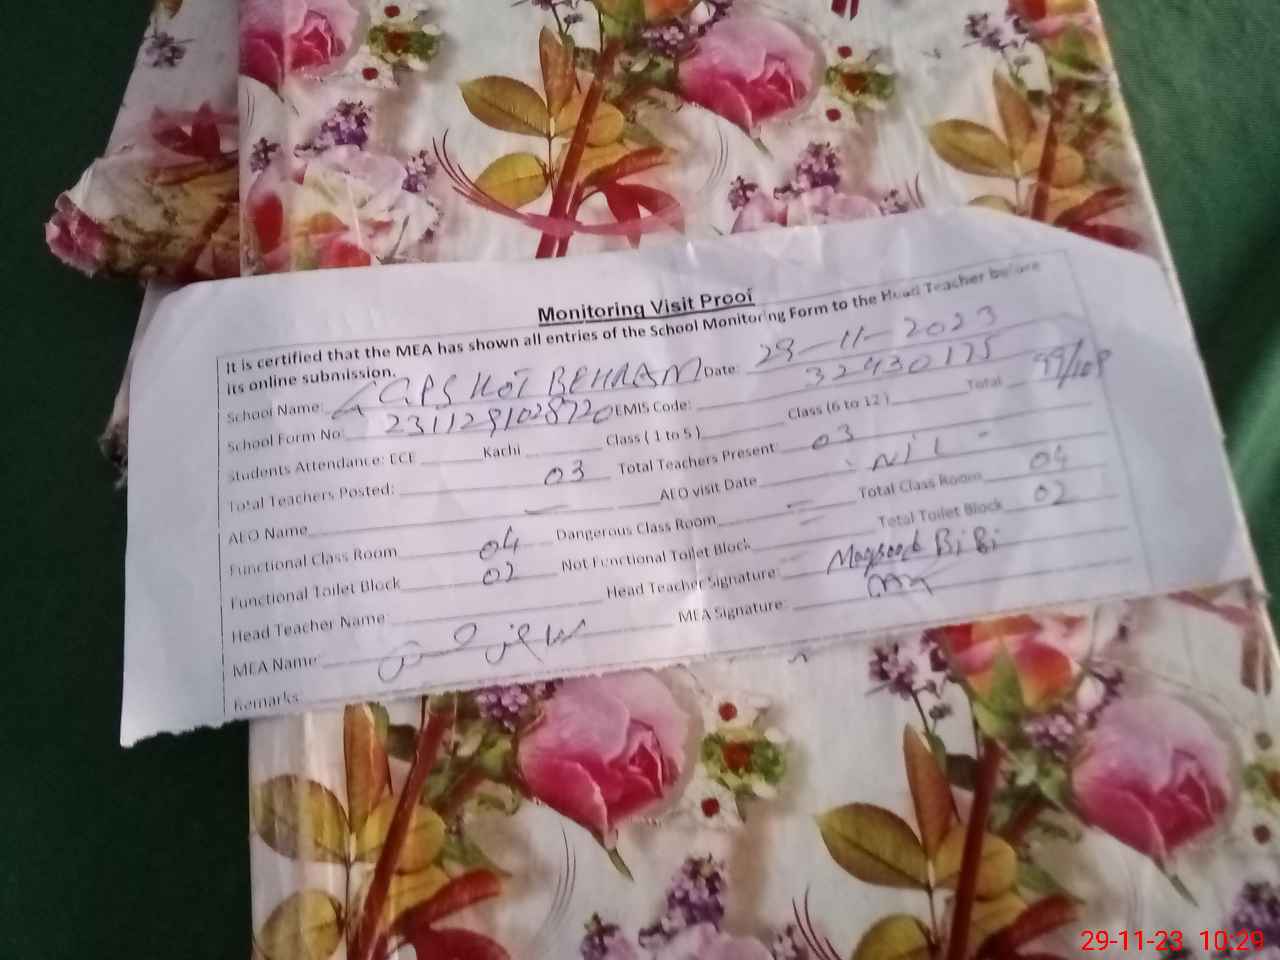 Monitoring Visit Proof
It is certified that the MEA has shown all entries of the School Monitoring Form to the Head Teacher before
its online submission.
School Name: GPS KOT BEHRAM Date: 29-11-2023
School Form No: 2311291028720 EMIS Code: 32430175
Students Attendance: ECE Kachi Class ( 1 to 5 ) Class (6 to 12 ) Total 99/108
Total Teachers Posted: 03 Total Teachers Present: 03
AEO Name AEO visit Date NIL -
Functional Class Room 04 Dangerous Class Room = Total Class Room 04
Functional Toilet Block 02 Not Functional Toilet Block = Total Toilet Block 02
Head Teacher Name Head Teacher Signature: Maqsood Bibi
MEA Name: MEA Signature:
Remarks
29-11-23 10:29